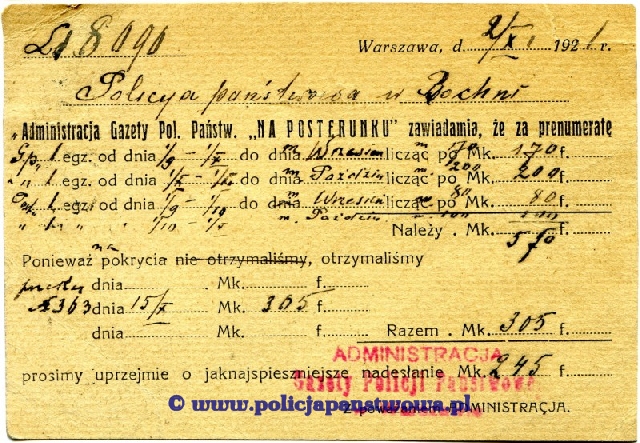 L. 8090
Warszawa, d. 2/XI 1921 r.
Policya państwowa w Bochni
„Administracja Gazety Pol. Państw. „NA POSTERUNKU” zawiadamia, że za prenumeratę
1 egz. od dnia 1/9 – 1/X do dnia m Wrzesień licząc po Mk. 170 f.
„ 1 egz. od dnia 1/X – do dnia m Paździer licząc po 200 Mk. 200 f.
1 egz. od dnia 1/9 – 1/10 do dnia m. Wrzesień licząc po 80 Mk. 80 f.
„ „ „ 1/10 – m. Paździer
Należy . Mk. f.
Ponieważ na pokrycia nie otrzymaliśmy, otrzymaliśmy
dnia Mk. f.
№ 363 dnia 15/X Mk. 305 f.
dnia Mk. f. Razem . Mk. 305 f.
ADMINISTRACJA
prosimy uprzejmie o jaknajspieszniejsze nadesłanie Mk. 245 f.
Gazety Policji Państwowej
© www.policjapanstwowa.pl
Z poważaniem ADMINISTRACJA.